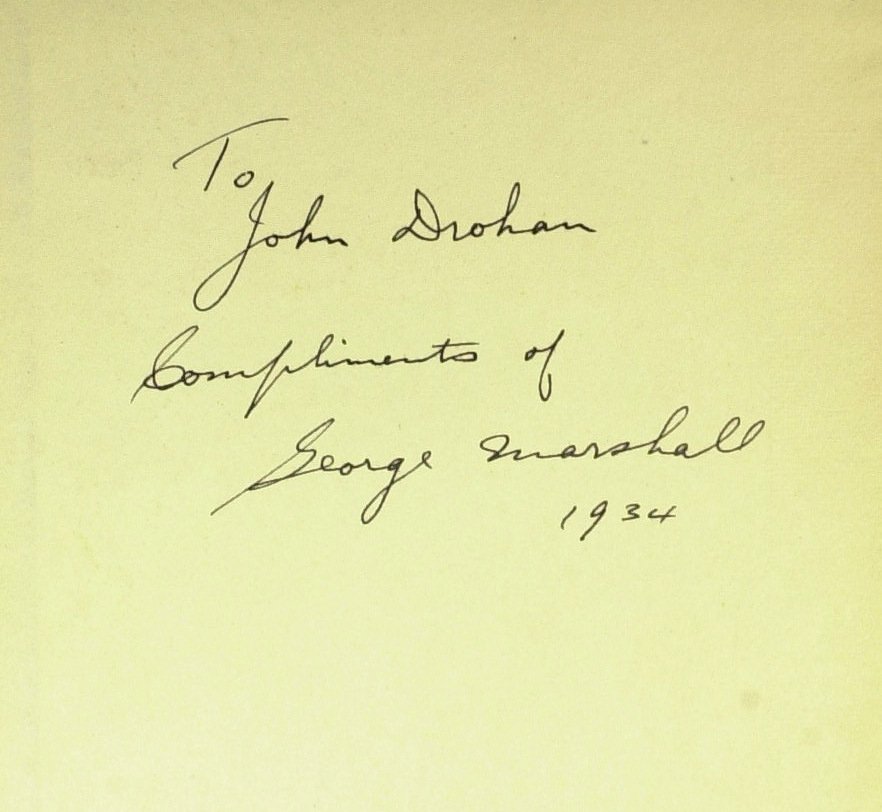 To
John Drohan
Compliments of
George Marshall
1934